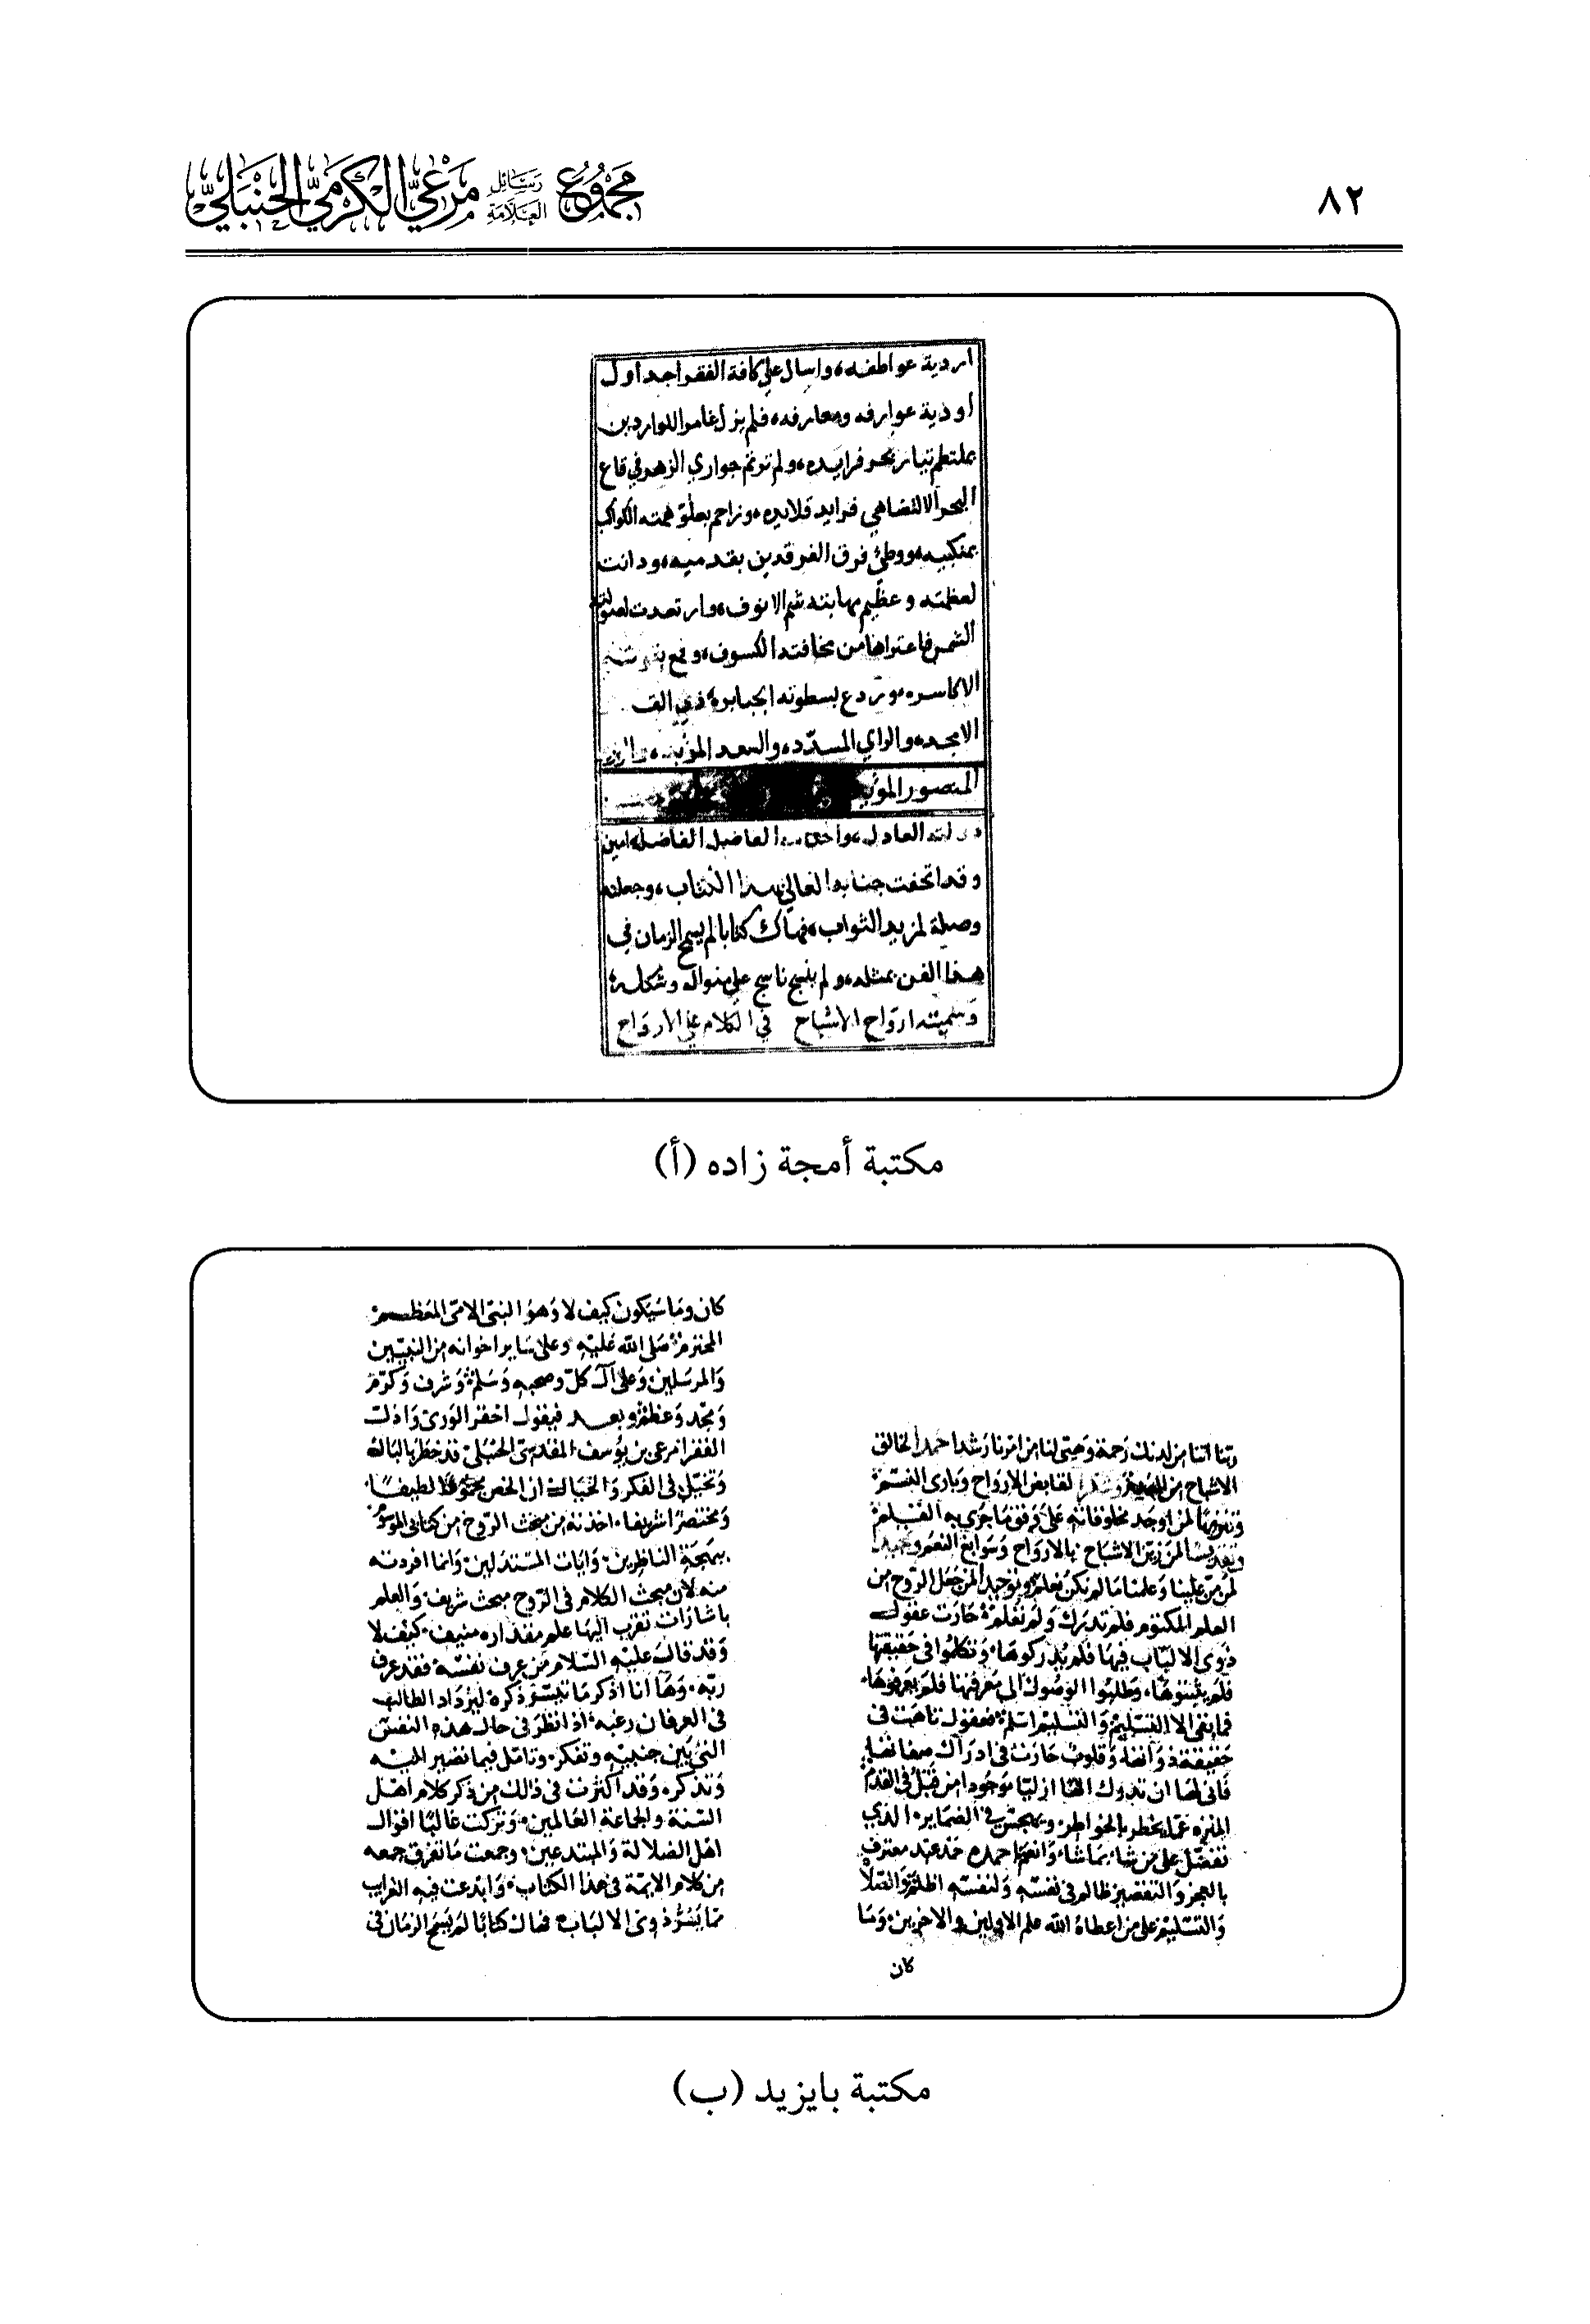 ٨٢
مجموع رسائل العلامة مرعي الكرمي الحنبلي
اردية عواطفه، واسال على كافة الفقرا جداول
أودية عوارفه ومعارفه، فلم يزل غامرا للواردين
بملتطم تيار بحر فرايده، ولم ترتم جواري الزهر في قاع
البحر الا لتضاهي فرايد قلايده، وزاحم بعلو همته الكواكب
بمنكبيه، ووطئ فرق الفرقدين بقدميه، ودانت
لعظمته وعظيم مهابته شم الانوف، وارتعدت لصولته
الشمس فاعتراها من مخافته الكسوف، وقمع
الاكاسره، وتردع بسطوته الجبابره، ذي
الامجد، والراي المسدّد، والسعد المؤبد،
المنصور
دولته العادل، العاضل الفاضله امين
وقد اتحفت جنابه العالي بهذا الكتاب، وجعلته
وصلة لمزيد الثواب، فهاك كتابا لم يسمح الزمان في
هذا الفن بمثله، ولم ينسج ناسج على منواله وشكله،
وسميته ارواح الاشباح في الكلام على الارواح
مكتبة أمجة زاده (أ)
ربنا اتنا من لدنك رحمة وهيئ لنا من امرنا رشدا حمدا لخالق
الاشباح من العدم وشكرا لقابض الارواح وبارى النسم
وتنزيها لمن اوجد مخلوقاته على وفق ما جرى به القلم
وتقديسا لمن زين الاشباح بالارواح وسوابغ النعم
لمن منّ علينا وعلمنا ما لم نكن نعلم وتوحيدا لمن جعل الروح من
العلم المكتوم فلم تدرك ولم تعلم حارت عقول
ذوى الالباب فيها فلم يدركوها وتكلموا في حقيقتها
فلم يثبتوها وطلبوا الوصول الى معرفتها فلم يعرفوها
فما بقى الا التسليم والتسليم اسلم فعقول تاهت في
حقيقة ذواتها وقلوب حارت في ادراك صفاتها
فانى لها ان تدرك الها ازليا موجودا من قبل في القدم
المنزه عما يخطر بالخواطر ويهجس في الضماير الذي
تفضل على من شاء بما شاء وانعم احمده حمد عبد معترف
بالعجز والتقصير ظالم في نفسه ولنفسه اظلم والصلاة
والتسليم على من اعطاه الله علم الاولين والاخرين وما
كان
كان وما سيكون كيف لا وهو النبى الامى المعظم
المحترم صلى الله عليه وعلى ساير اخوانه من النبيين
والمرسلين وعلى آل كلّ وصحبه وسلم وشرف وكرّم
ومجد وعظم وبعد فيقول احقر الورى واذل
الفقرا مرعي بن يوسف المقدسى الحنبلى قد خطر بالبال
وتخيل في الفكر والخيال ان الخص مجموعا لطيفا
ومختصرا شريفا اخذته من مبحث الروح من كتابى الموسوم
ببهجة الناظرين وايات المستدلين وانما افردته
منه لان مبحث الكلام في الروح مبحث شريف والعلم
باشارات تقرب اليها علم مقداره منيف كيف لا
وقد قال عليه السلام من عرف نفسه فقد عرف
ربه وها انا اذكر ما تيسر ذكره ليزداد الطالب
في العرفان رغبة اذا نظر في حال هذه النفس
التي بين جنبيه وتفكر وتامل فيما تصير اليه
وتذكر وقد اكثرت في ذلك من ذكر كلام اهل
السنة والجاعة العالمين وتركت غالبا اقوال
اهل الضلالة والمبتدعين وجمعت ما تفرق جمعه
من كلام الايمة في هذا الكتاب وابدعت فيه الغرايب
مما يسر ذوى الالباب فهاك كتابا لم يسمح الزمان في
مكتبة بايزيد (ب)